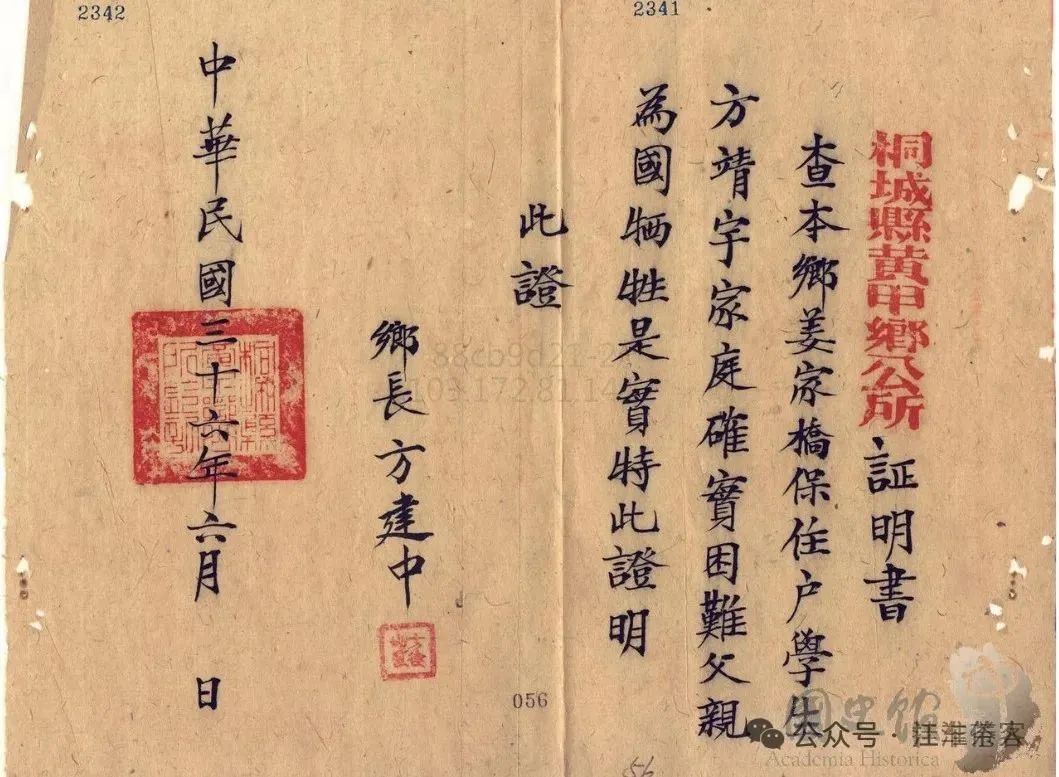 2342
2341
桐城縣黃甲鄉公所証明書
查本鄉姜家橋保住户學生
方靖宇家庭確實困難父親
為國牺牲是實特此證明
此證
鄉長方建中
中華民國三十六年六月 日
056
56
國史館
Academia Historica
公众号·江淮倦客